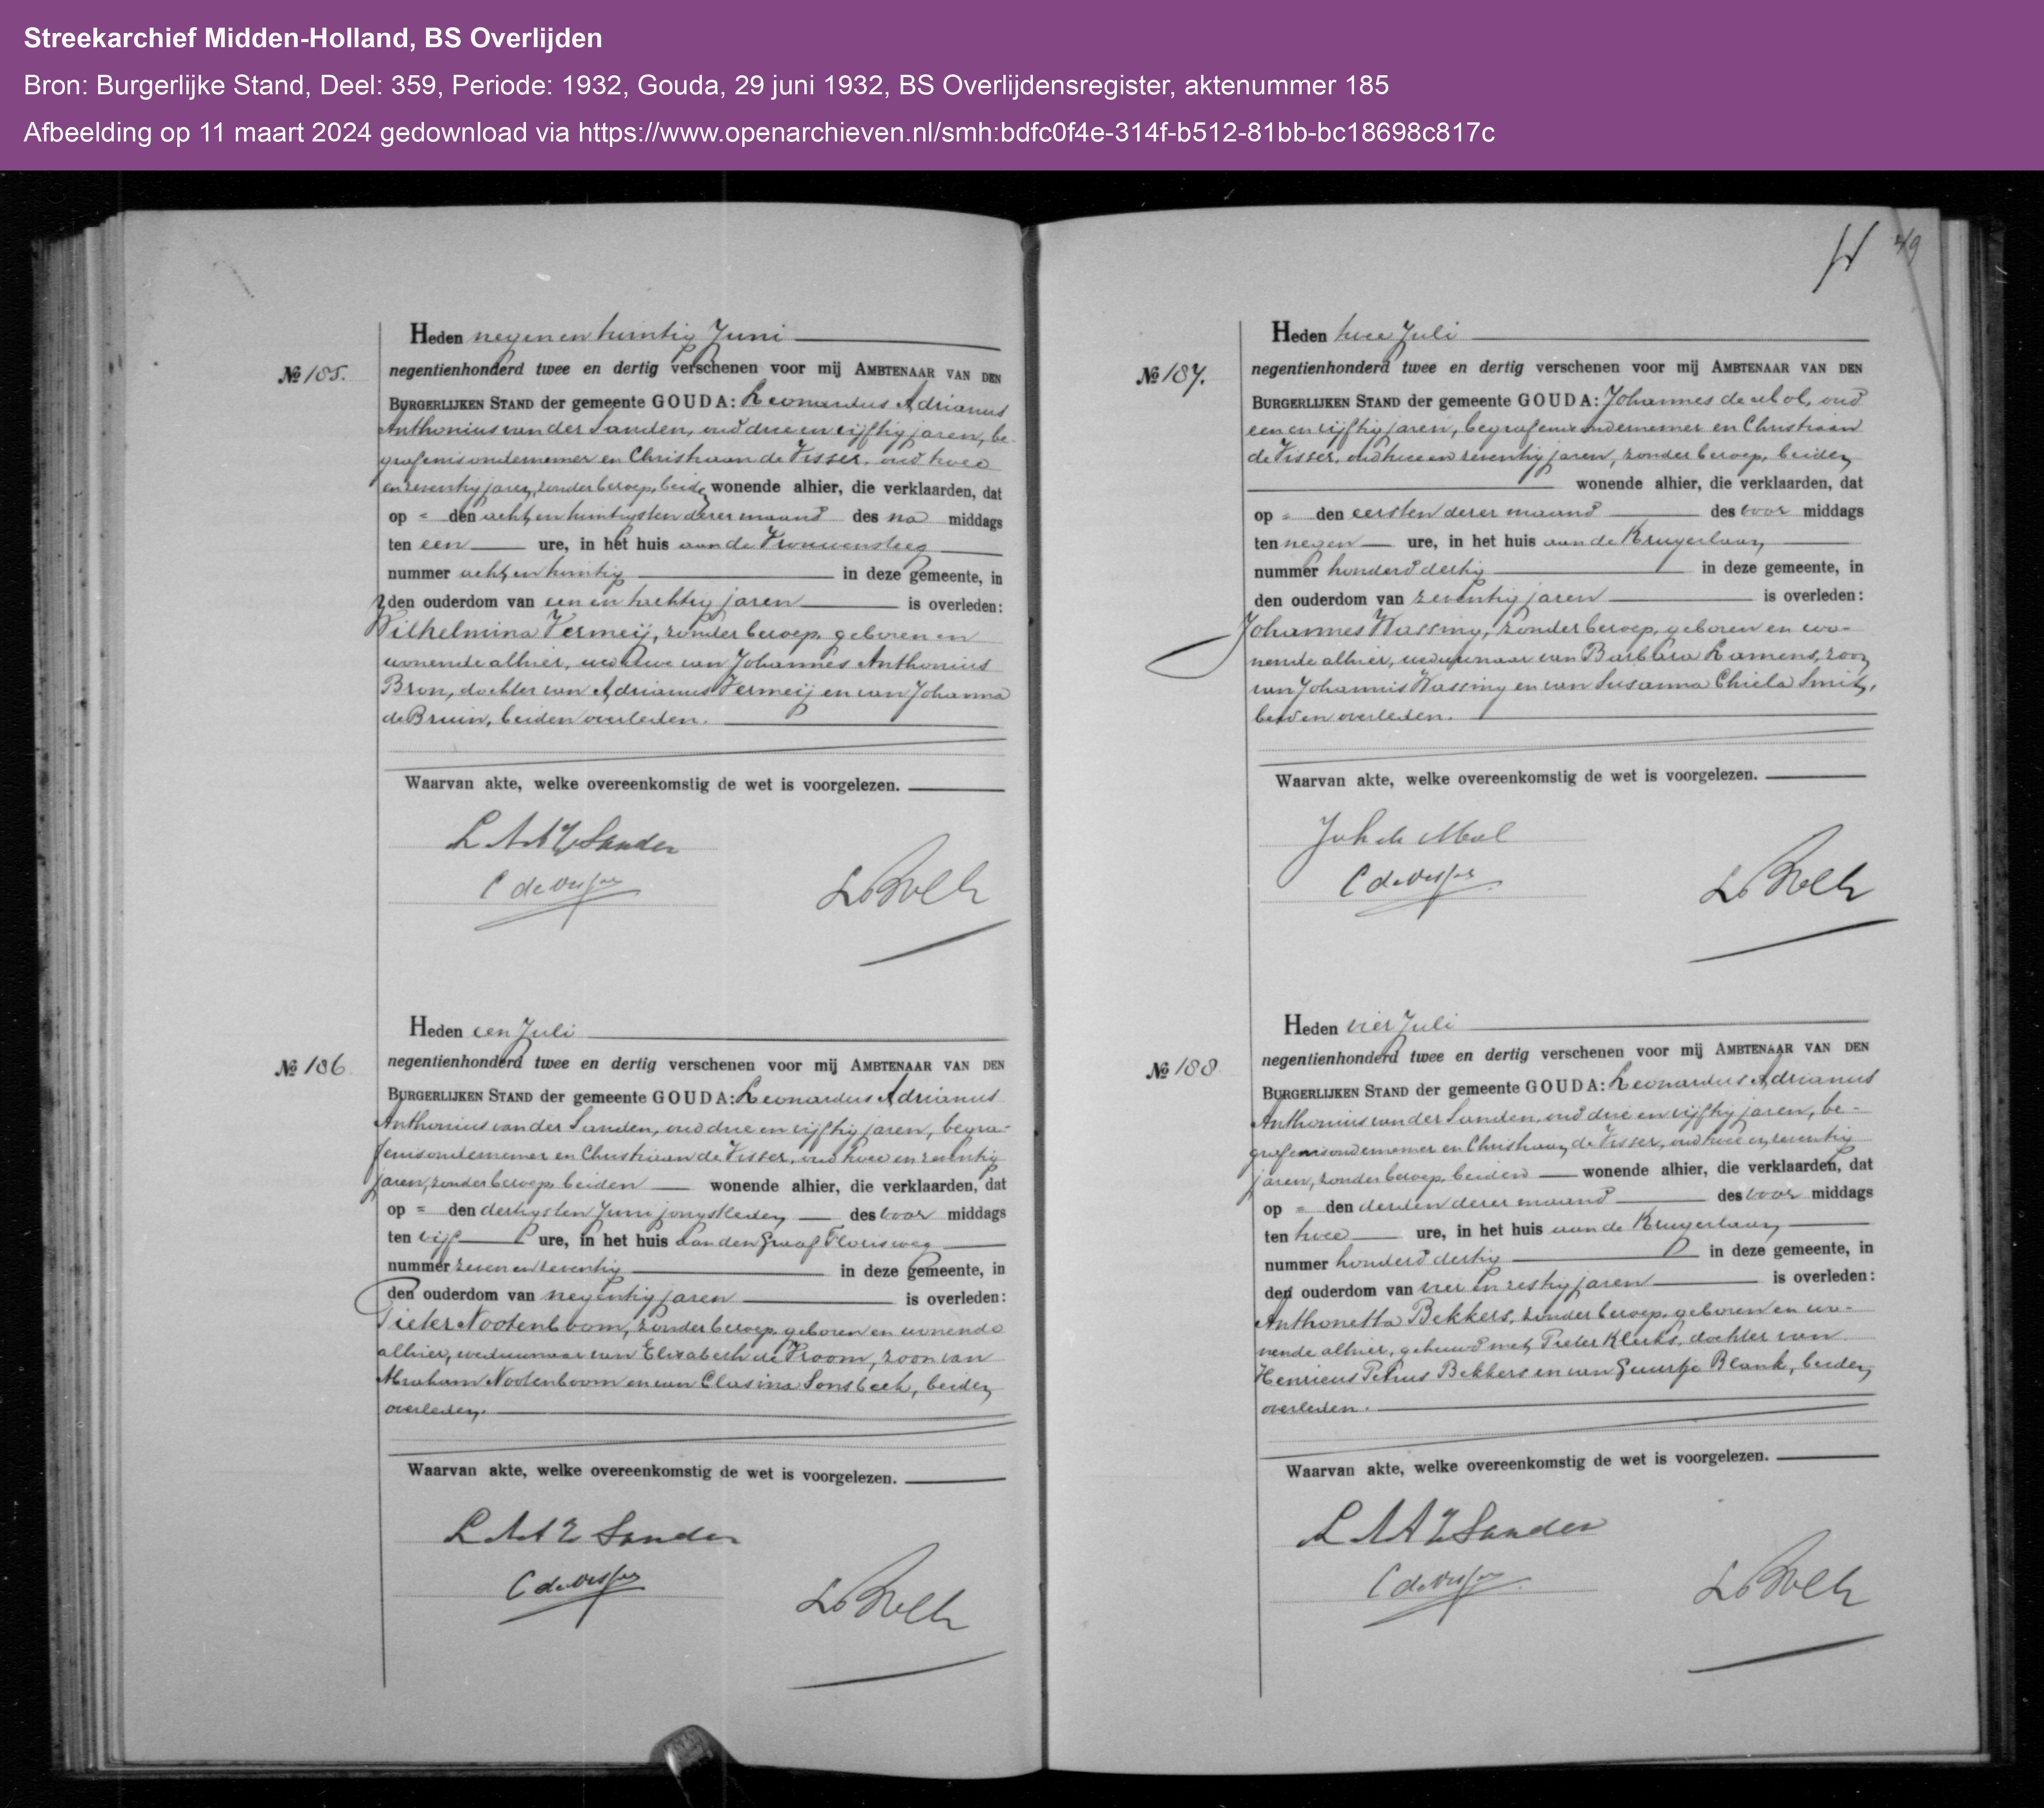 Streekarchief Midden-Holland, BS Overlijden
Bron: Burgerlijke Stand, Deel: 359, Periode: 1932, Gouda, 29 juni 1932, BS Overlijdensregister, aktenummer 185
Afbeelding op 11 maart 2024 gedownload via https://www.openarchieven.nl/smh:bdfc0f4e-314f-b512-81bb-bc18698c817c
Heden negen en twintig Juni
№ 185.
negentienhonderd twee en dertig verschenen voor mij AMBTENAAR VAN DEN
BURGERLIJKEN STAND der gemeente GOUDA: Leonardus Adrianus
Anthonius van der Sanden, oud drie en vijftig jaren, be-
grafenisondernemer en Christiaan de Visser, oud twee
en zeventig jaren, zonder beroep, beiden wonende alhier, die verklaarden, dat
op = den acht en twintigsten dezer maand des na middags
ten een ure, in het huis aan de Vrouwensteeg
nummer acht en twintig in deze gemeente, in
den ouderdom van een en tachtig jaren is overleden:
Wilhelmina Vermeij, zonder beroep, geboren en
wonende alhier, weduwe van Johannes Anthonius
Bron, dochter van Adrianus Vermeij en van Johanna
de Bruin, beiden overleden.
Waarvan akte, welke overeenkomstig de wet is voorgelezen.
L A A V Sanden
C de Visser
Heden een Juli
№ 186
negentienhonderd twee en dertig verschenen voor mij AMBTENAAR VAN DEN
BURGERLIJKEN STAND der gemeente GOUDA: Leonardus Adrianus
Anthonius van der Sanden, oud drie en vijftig jaren, begra-
fenisondernemer en Christiaan de Visser, oud twee en zeventig
jaren, zonder beroep, beiden wonende alhier, die verklaarden, dat
op = den dertigsten Juni jongstleden des voor middags
ten vijf ure, in het huis aan den Graaf Florisweg
nummer zeven en zeventig in deze gemeente, in
den ouderdom van negentig jaren is overleden:
Pieter Nootenboom, zonder beroep, geboren en wonende
alhier, weduwnaar van Elizabeth de Vroom, zoon van
Abraham Nootenboom en van Clasina Sonsbeek, beiden
overleden.
Waarvan akte, welke overeenkomstig de wet is voorgelezen.
L A A V Sanden
C de Visser
49
Heden twee Juli
№ 187.
negentienhonderd twee en dertig verschenen voor mij AMBTENAAR VAN DEN
BURGERLIJKEN STAND der gemeente GOUDA: Johannes de Mol, oud
een en vijftig jaren, begrafenisondernemer en Christiaan
de Visser, oud twee en zeventig jaren, zonder beroep, beiden
wonende alhier, die verklaarden, dat
op = den eersten dezer maand des voor middags
ten negen ure, in het huis aan de Krugerlaan
nummer honderd dertig in deze gemeente, in
den ouderdom van zeventig jaren is overleden:
Johannes Wassing, zonder beroep, geboren en wo-
nende alhier, weduwnaar van Barbara Lamens, zoon
van Johannis Wassing en van Susanna Chiela Smit,
beiden overleden.
Waarvan akte, welke overeenkomstig de wet is voorgelezen.
Joh de Mol
C de Visser
Heden vier Juli
№ 188
negentienhonderd twee en dertig verschenen voor mij AMBTENAAR VAN DEN
BURGERLIJKEN STAND der gemeente GOUDA: Leonardus Adrianus
Anthonius van der Sanden, oud drie en vijftig jaren, be-
grafenisondernemer en Christiaan de Visser, oud twee en zeventig
jaren, zonder beroep, beiden wonende alhier, die verklaarden, dat
op = den derden dezer maand des voor middags
ten twee ure, in het huis aan de Krugerlaan
nummer honderd dertig in deze gemeente, in
den ouderdom van vier en zestig jaren is overleden:
Anthonetta Bekkers, zonder beroep, geboren en wo-
nende alhier, gehuwd met Pieter Klerks, dochter van
Henricus Petrus Bekkers en van Geertje Blank, beiden
overleden.
Waarvan akte, welke overeenkomstig de wet is voorgelezen.
L A A V Sanden
C de Visser